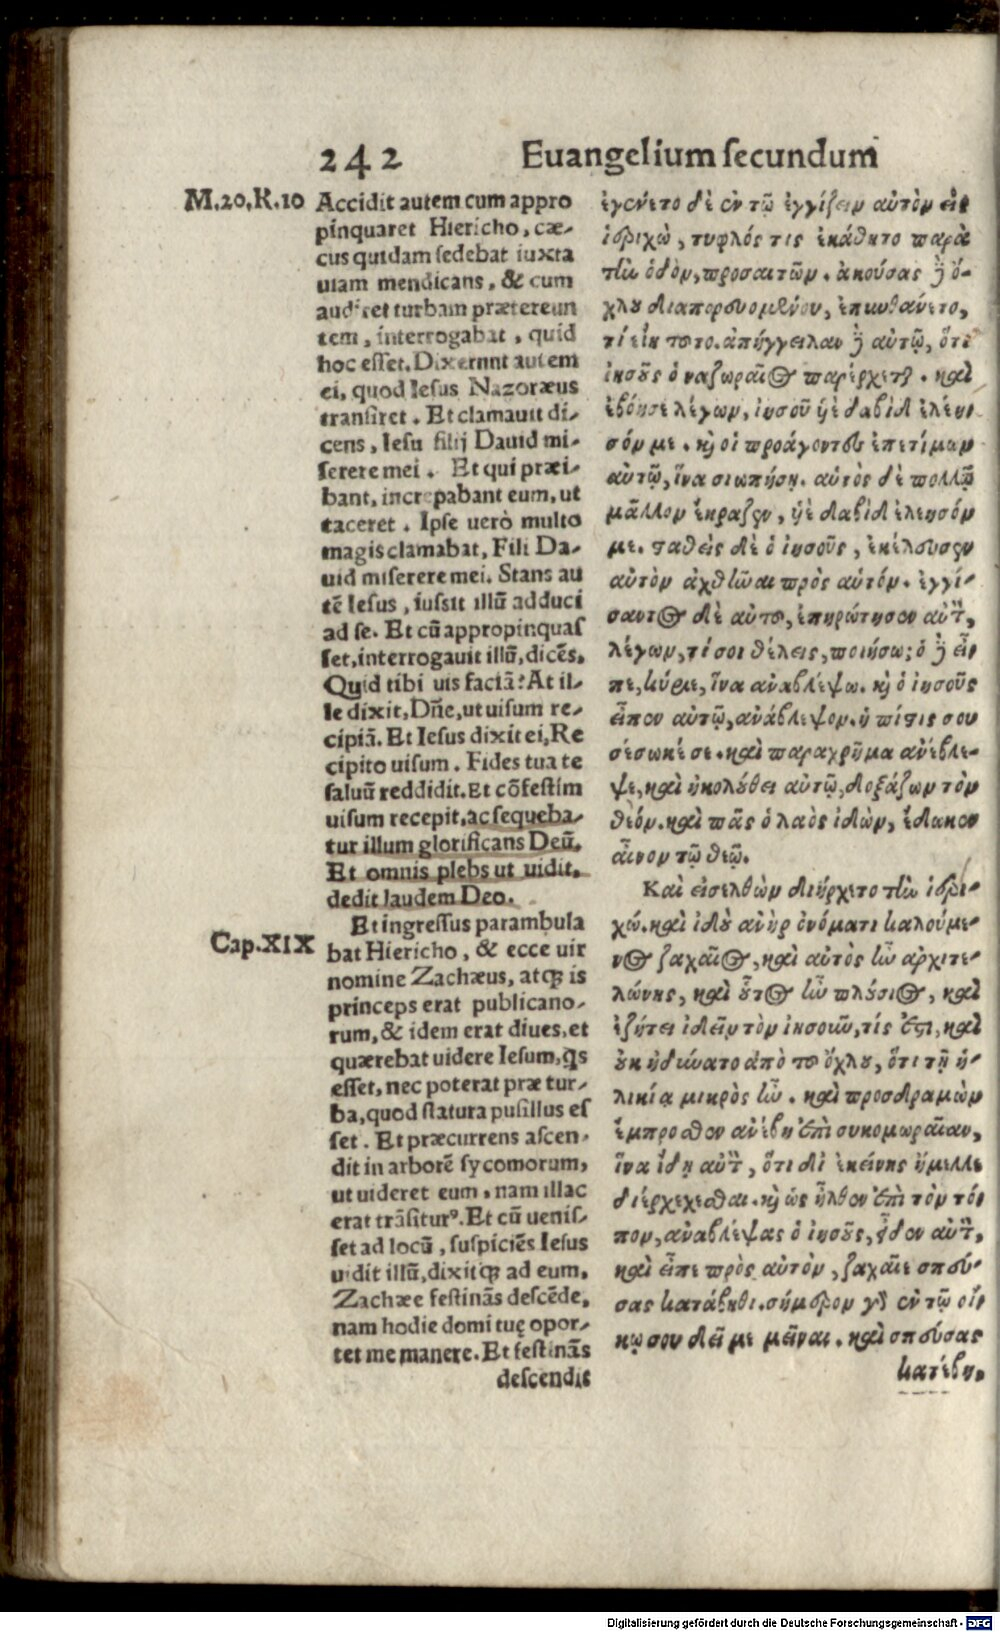 242 Euangelium secundum
M.20.K.10
Accidit autem cum appro
pinquaret Hiericho, cæ-
cus quidam sedebat iuxta
uiam mendicans, & cum
audiret turbam prætereun
tem, interrogabat, quid
hoc esset. Dixernnt autem
ei, quod Iesus Nazoræus
transiret. Et clamauit di-
cens, Iesu filij Dauid mi-
serere mei. Et qui præi-
bant, increpabant eum, ut
taceret. Ipse uerò multo
magis clamabat, Fili Da-
uid miserere mei. Stans au
tẽ Iesus, iussit illũ adduci
ad se. Et cũ appropinquas
set, interrogauit illũ, dicẽs,
Quid tibi uis faciã? At il-
le dixit, Dñe, ut uisum re-
cipiã. Et Iesus dixit ei, Re
cipito uisum. Fides tua te
saluũ reddidit. Et cõfestim
uisum recepit, ac sequeba-
tur illum glorificans Deũ.
Et omnis plebs ut uidit,
dedit laudem Deo.
Cap.XIX
Et ingressus parambula
bat Hiericho, & ecce uir
nomine Zachæus, atqꝫ is
princeps erat publicano-
rum, & idem erat diues, et
quærebat uidere Iesum, ꝗs
esset, nec poterat præ tur-
ba, quod statura pusillus es
set. Et præcurrens ascen-
dit in arborẽ sycomorum,
ut uideret eum, nam illac
erat trãsiturꝰ. Et cũ uenis-
set ad locũ, suspiciẽs Iesus
uidit illũ, dixitqꝫ ad eum,
Zachæe festinãs descẽde,
nam hodie domi tuę opor-
tet me manere. Et festinãs
descendit
ἐγένετο δὲ ἐν τῷ ἐγγίζειν αὐτὸν εἰς
ἱεριχὼ, τυφλός τις ἐκάθητο παρὰ
τὴν ὁδὸν, προσαιτῶν. ἀκούσας δὲ ὄ-
χλου διαπορευομένου, ἐπυνθάνετο,
τί εἴη τοῦτο. ἀπήγγειλαν δὲ αὐτῷ, ὅτι
ἰησοῦς ὁ ναζωραῖος παρέρχεται. καὶ
ἐβόησε λέγων, ἰησοῦ ὑὲ δαβὶδ ἐλέη-
σόν με. καὶ οἱ προάγοντες ἐπετίμων
αὐτῷ, ἵνα σιωπήσῃ. αὐτὸς δὲ πολλῷ
μᾶλλον ἔκραζεν, ὑὲ δαβὶδ ἐλέησόν
με. σταθεὶς δὲ ὁ ἰησοῦς, ἐκέλευσεν
αὐτὸν ἀχθῆναι πρὸς αὑτόν. ἐγγί-
σαντος δὲ αὐτοῦ, ἐπηρώτησεν αὐτὸν,
λέγων, τί σοι θέλεις, ποιήσω; ὁ δὲ εἶ-
πε, κύριε, ἵνα ἀναβλέψω. καὶ ὁ ἰησοῦς
εἶπεν αὐτῷ, ἀνάβλεψον. ἡ πίστις σου
σέσωκέ σε. καὶ παραχρῆμα ἀνέβλε-
ψε, καὶ ἠκολούθει αὐτῷ, δοξάζων τὸν
θεόν. καὶ πᾶς ὁ λαὸς ἰδὼν, ἔδωκεν
αἶνον τῷ θεῷ.
Καὶ εἰσελθὼν διήρχετο τὴν ἱερι-
χώ. καὶ ἰδοὺ ἀνὴρ ὀνόματι καλούμε-
νος ζαχαῖος, καὶ αὐτὸς ἦν ἀρχιτε-
λώνης, καὶ οὗτος ἦν πλούσιος, καὶ
ἐζήτει ἰδεῖν τὸν ἰησοῦν, τίς ἐστι, καὶ
οὐκ ἠδύνατο ἀπὸ τοῦ ὄχλου, ὅτι τῇ ἡ-
λικίᾳ μικρὸς ἦν. καὶ προσδραμὼν
ἔμπροσθεν ἀνέβη ἐπὶ συκομωραίαν,
ἵνα ἴδῃ αὐτὸν, ὅτι δι' ἐκείνης ἤμελλε
διέρχεσθαι. καὶ ὡς ἦλθεν ἐπὶ τὸν τό-
πον, ἀναβλέψας ὁ ἰησοῦς, εἶδεν αὐτὸν,
καὶ εἶπε πρὸς αὐτὸν, ζαχαῖε σπεύ-
σας κατάβηθι. σήμερον γὰρ ἐν τῷ οἴ-
κῳ σου δεῖ με μεῖναι. καὶ σπεύσας
κατέβη,
Digitalisierung gefördert durch die Deutsche Forschungsgemeinschaft - DFG